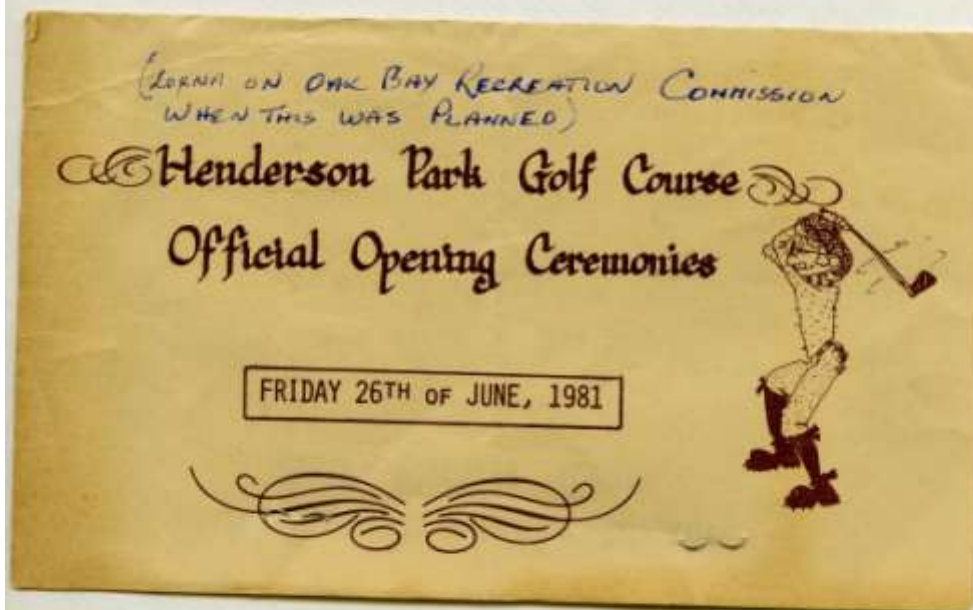 (LORNA ON OAK BAY RECREATION COMMISSION
WHEN THIS WAS PLANNED)
Henderson Park Golf Course
Official Opening Ceremonies
FRIDAY 26TH OF JUNE, 1981